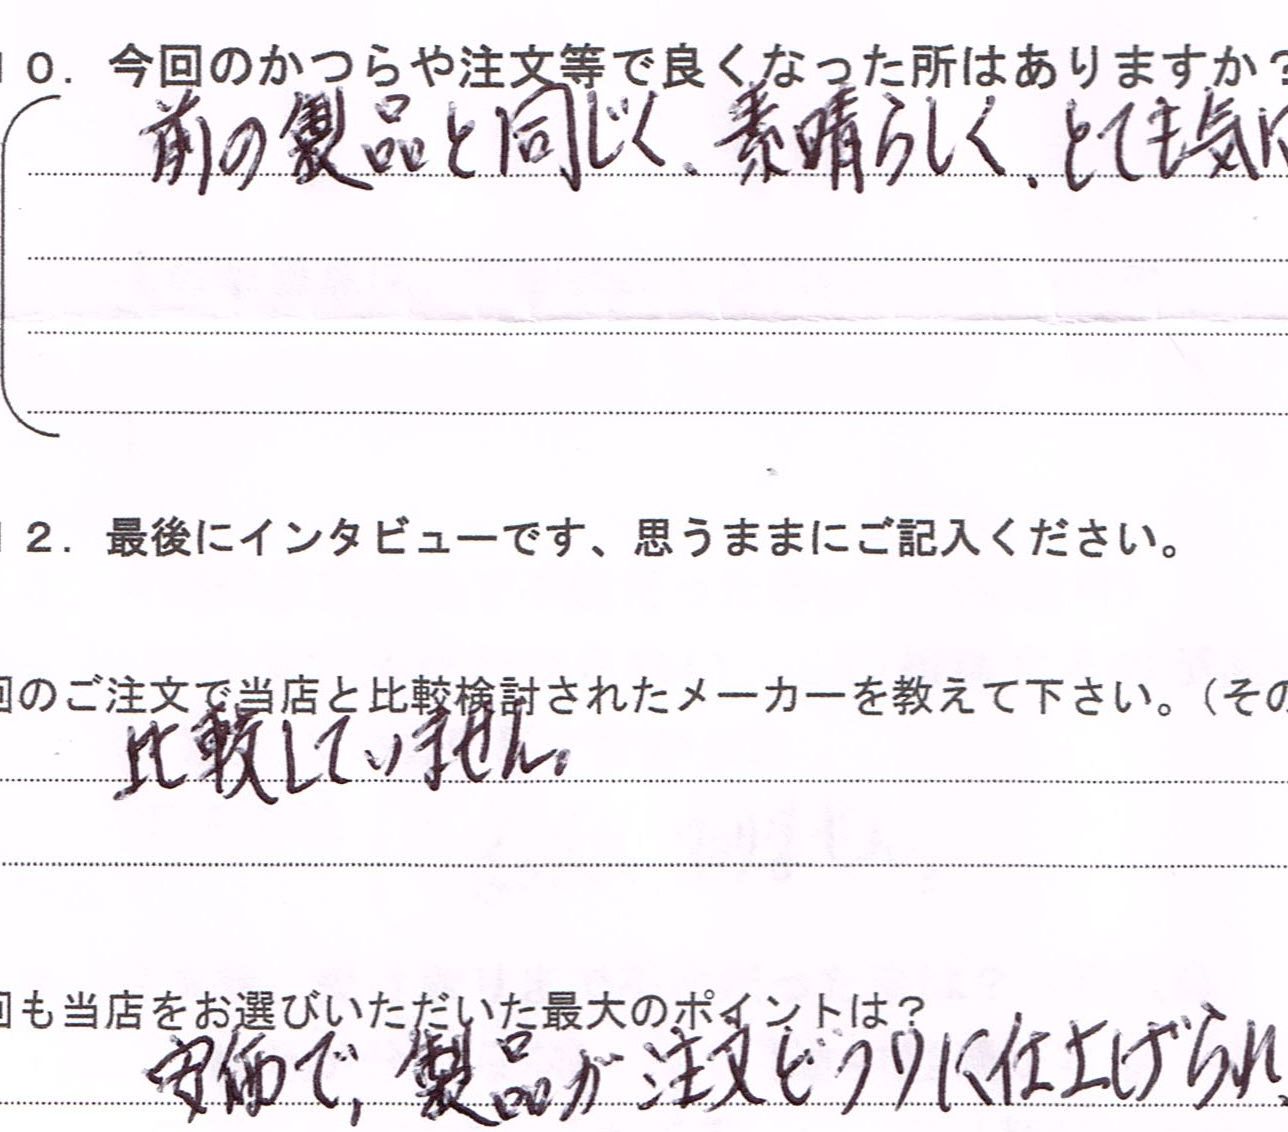 10. 今回のかつらや注文等で良くなった所はありますか?
前の製品と同じく、素晴らしく、とても気に
12. 最後にインタビューです、思うままにご記入ください。
回のご注文で当店と比較検討されたメーカーを教えて下さい。(その
比較していません。
回も当店をお選びいただいた最大のポイントは?
安価で、製品が注文どうりに仕上げられ、